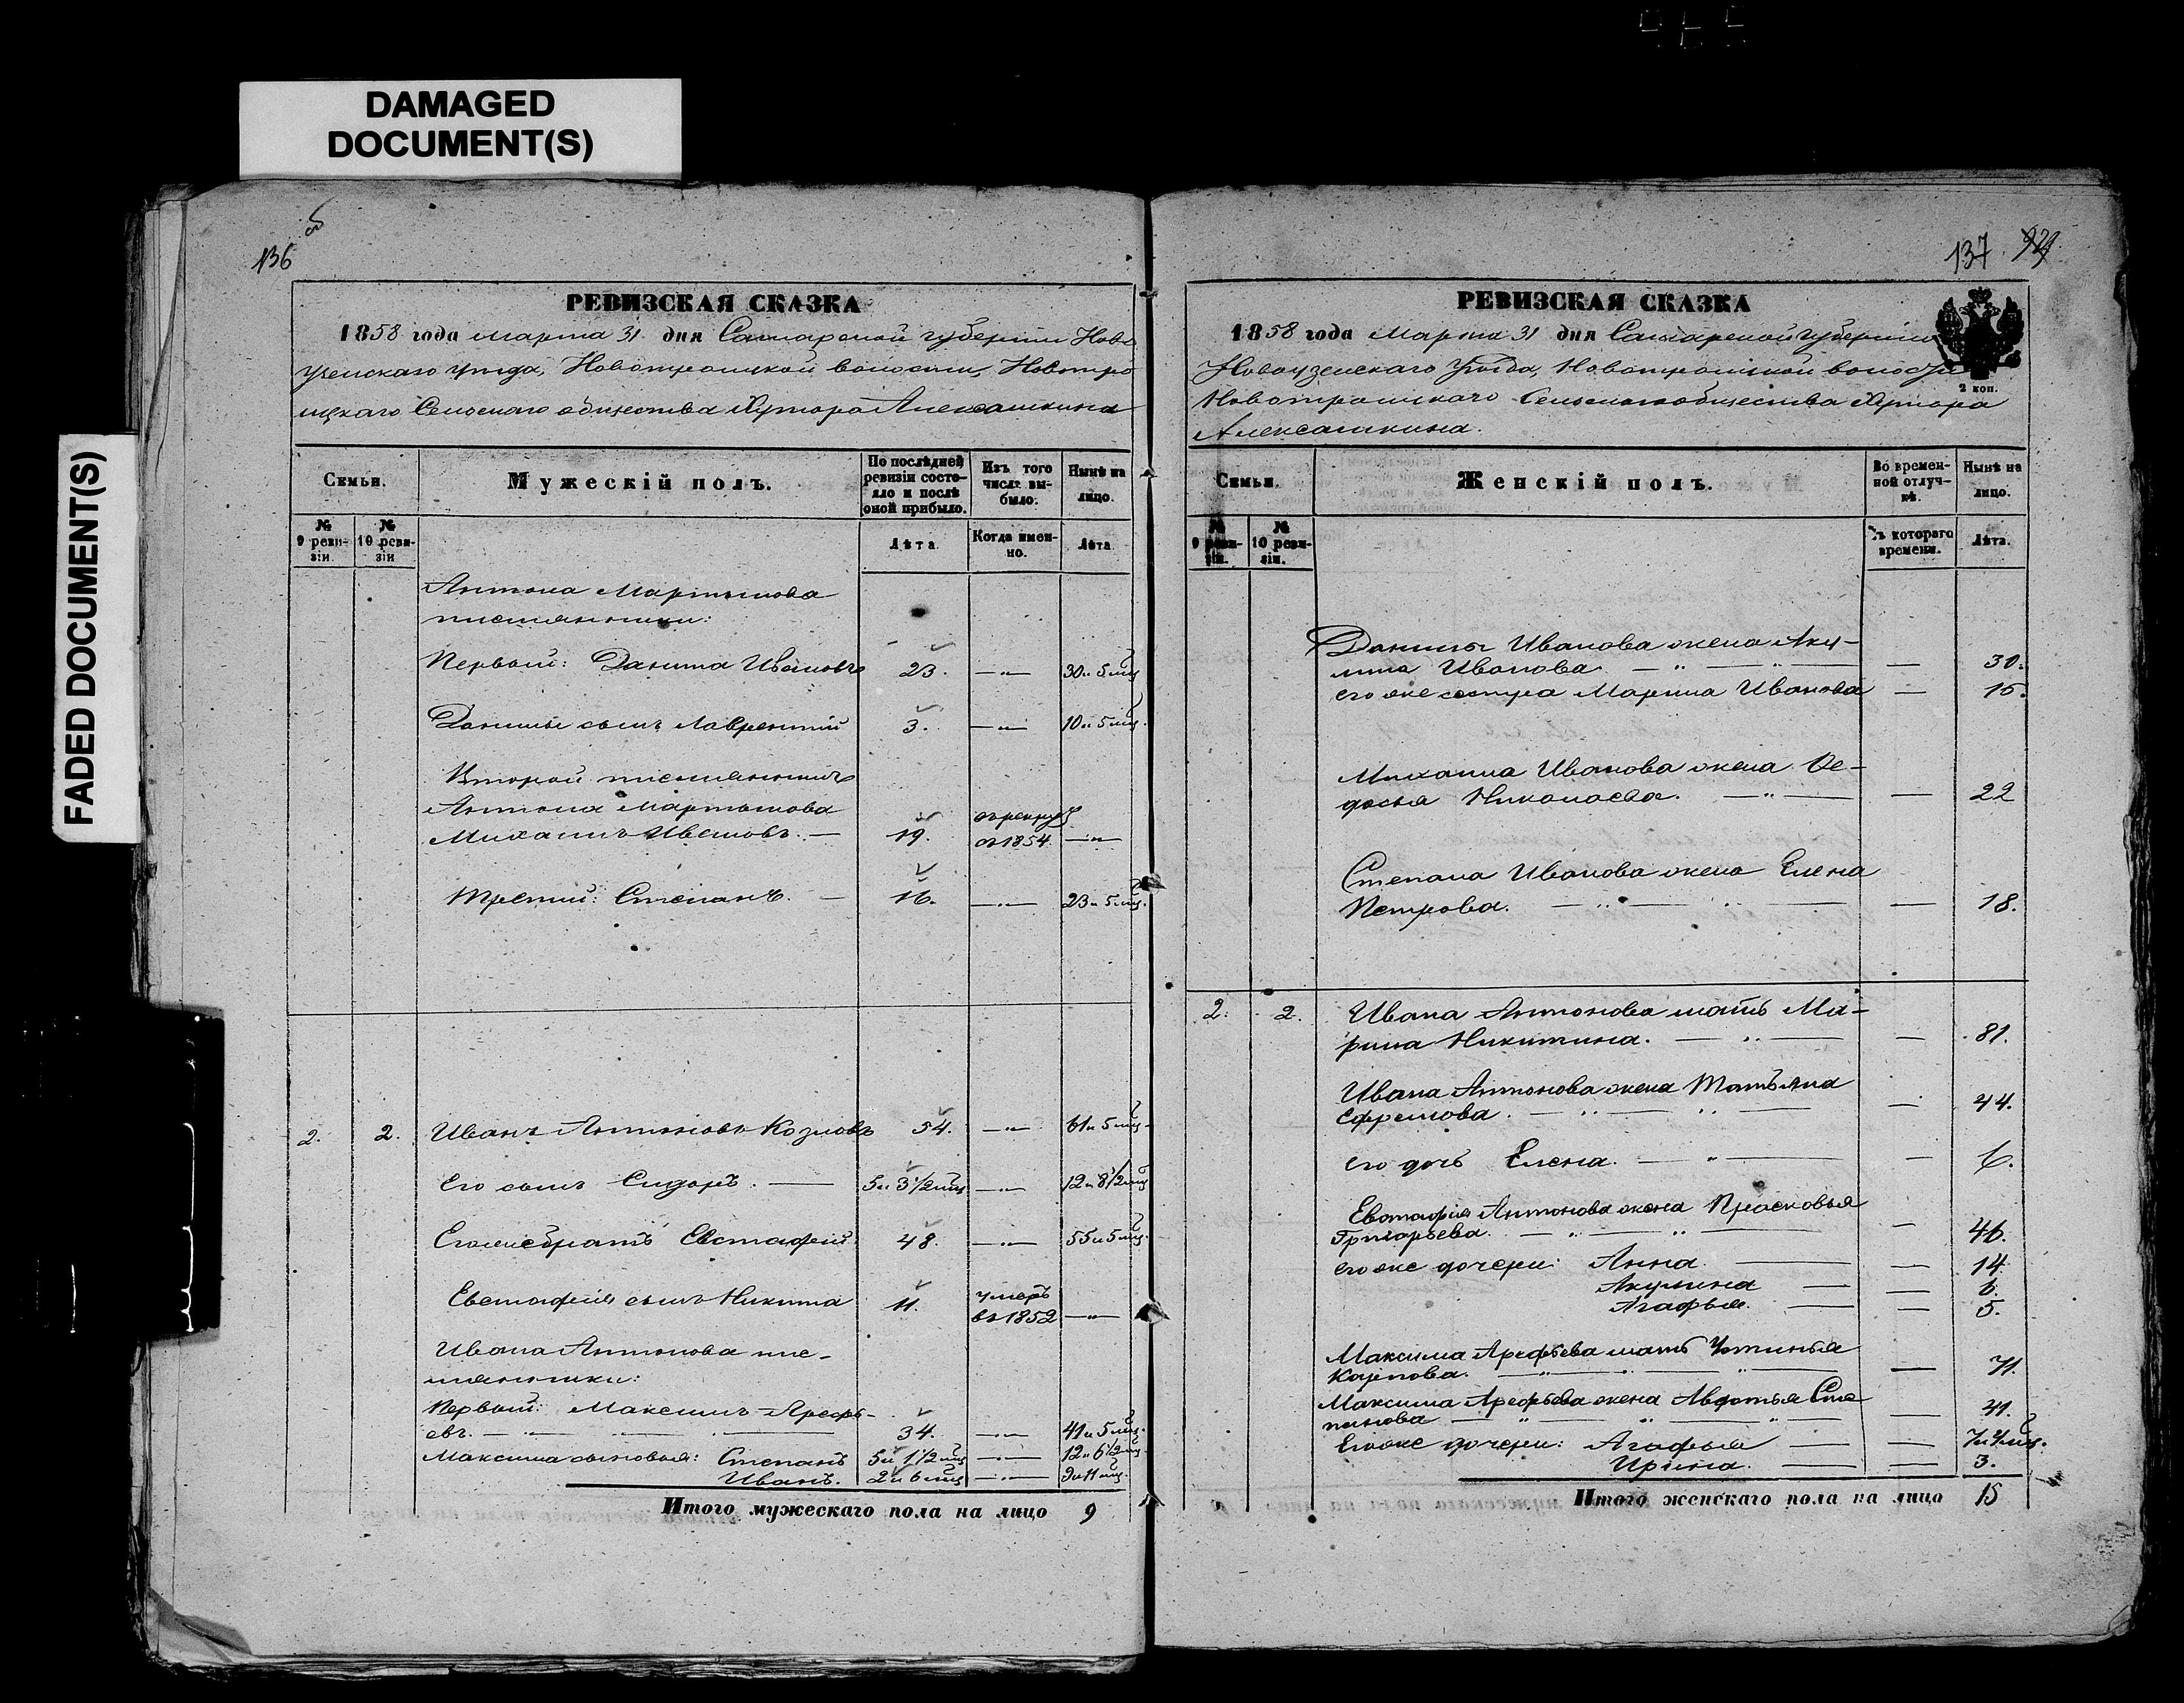 DAMAGED
DOCUMENT(S)
FADED DOCUMENT(S)
136
РЕВИЗСКАЯ СКАЗКА
1858 года марта 31 дня Самарской губерніи Ново
узенскаго уѣзда, Новотроицкой волости, Новотро
ицкаго Сельскаго общества Хутора Алексашкина
Семьи.
Мужескій полъ.
По послѣдней
ревизіи состо-
яло и послѣ
оной прибыло.
Изъ того
числа вы-
было.
Нынѣ на
лицо.
№
9 реви-
зіи.
№
10 реви-
зіи
Лѣта
Когда имен-
но.
Лѣта
Антона Мартынова
племянники:
Первый: Данила Ивановъ 23. —„— 30 и 5 мц
Данилы сынъ Лаврентій 3. —„— 10 и 5 мц.
Второй племянникъ
Антона Мартынова
Михаилъ Ивановъ. — 19. въ рекрут
съ 1854. —„—
Третій: Степанъ. — 16. —„— 23 и 5 мц.
2. 2. Иванъ Антоновъ Козловъ 54. —„— 61 и 5 мц
Его сынъ Сидоръ. — 5 и 3 1/2 мц —„— 12 и 8 1/2 мц
Его же братъ Евстафій 48. —„— 55 и 5 мц.
Евстафія сынъ Никита 11. умеръ
въ 1852 —„—
Ивана Антонова пле-
мянники:
Первый: Максимъ Арефь-
евъ. — 34. —„— 41 и 5 мц.
Максима сыновья: Степанъ 5 и 1 1/2 мц —„— 12 и 6 1/2 мц
Иванъ. 2 и 6 мц —„— 9 и 11 мц.
Итого мужескаго пола на лицо 9
137
РЕВИЗСКАЯ СКАЗКА
1858 года Марта 31 дня Самарской губерніи
Новоузенскаго Уѣзда, Новотроицкой волости
Новотроицкаго Сельскаго общества Хутора
Алексашкина.
2 коп.
Семьи.
Женскій полъ.
Во времен-
ной отлуч-
кѣ.
Нынѣ на
лицо.
№
9 реви-
зіи.
№
10 реви-
зіи.
Съ котораго
времени.
Лѣта.
Данилы Иванова жена Аку-
лина Иванова — „ — „ — — 30.
его же сестра Марина Иванова — 15.
Михаила Иванова жена Ѳе-
досья Николаева. — „ — — 22
Степана Иванова жена Елена
Петрова. — „ — „ — — 18.
2. 2. Ивана Антонова мать Ма-
рина Никитина. — „ — — 81.
Ивана Антонова жена Татьяна
Ефремова. — „ — „ — — 44.
его дочь Елена. — „ — — 6.
Евстафія Антонова жена Прасковья
Григорьева. — „ — „ — — 46.
его же дочери: Анна. — — 14
Акулина — — 6.
Агафья. — — 5.
Максима Арефьева мать Устинья
Карпова. — „ — „ — — 71.
Максима Арефьева жена Авдотья Сте
панова — „ — „ — „ — — 41.
Его же дочери: Агафья — — 7 и 4 мц.
Ирина. — — 3.
Итого женскаго пола на лицо 15